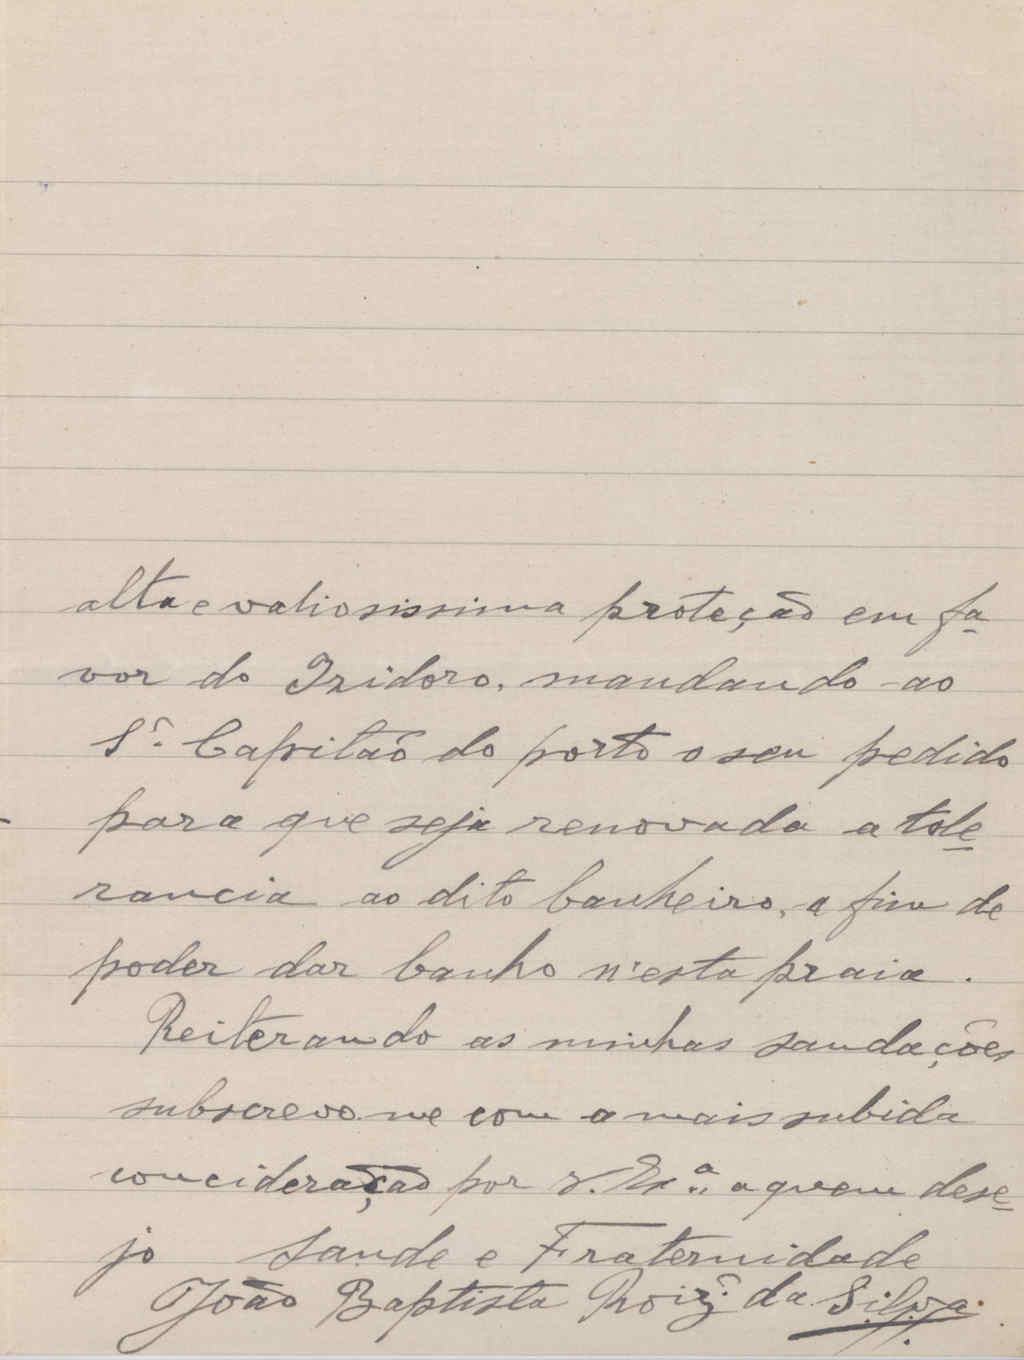 alta e valiosissima proteção em fa-
vor do Izidoro, mandando ao
Sr. Capitaõ do porto o seu pedido
para que seja renovada a tole-
rancia ao dito banheiro, a fim de
poder dar banho n'esta praia.
Reiterando as minhas saudações
subscrevo-me com a mais subida
concideração por V. Exª. a quem dese-
jo Saude e Fraternidade
João Baptista Roiz da Silva.